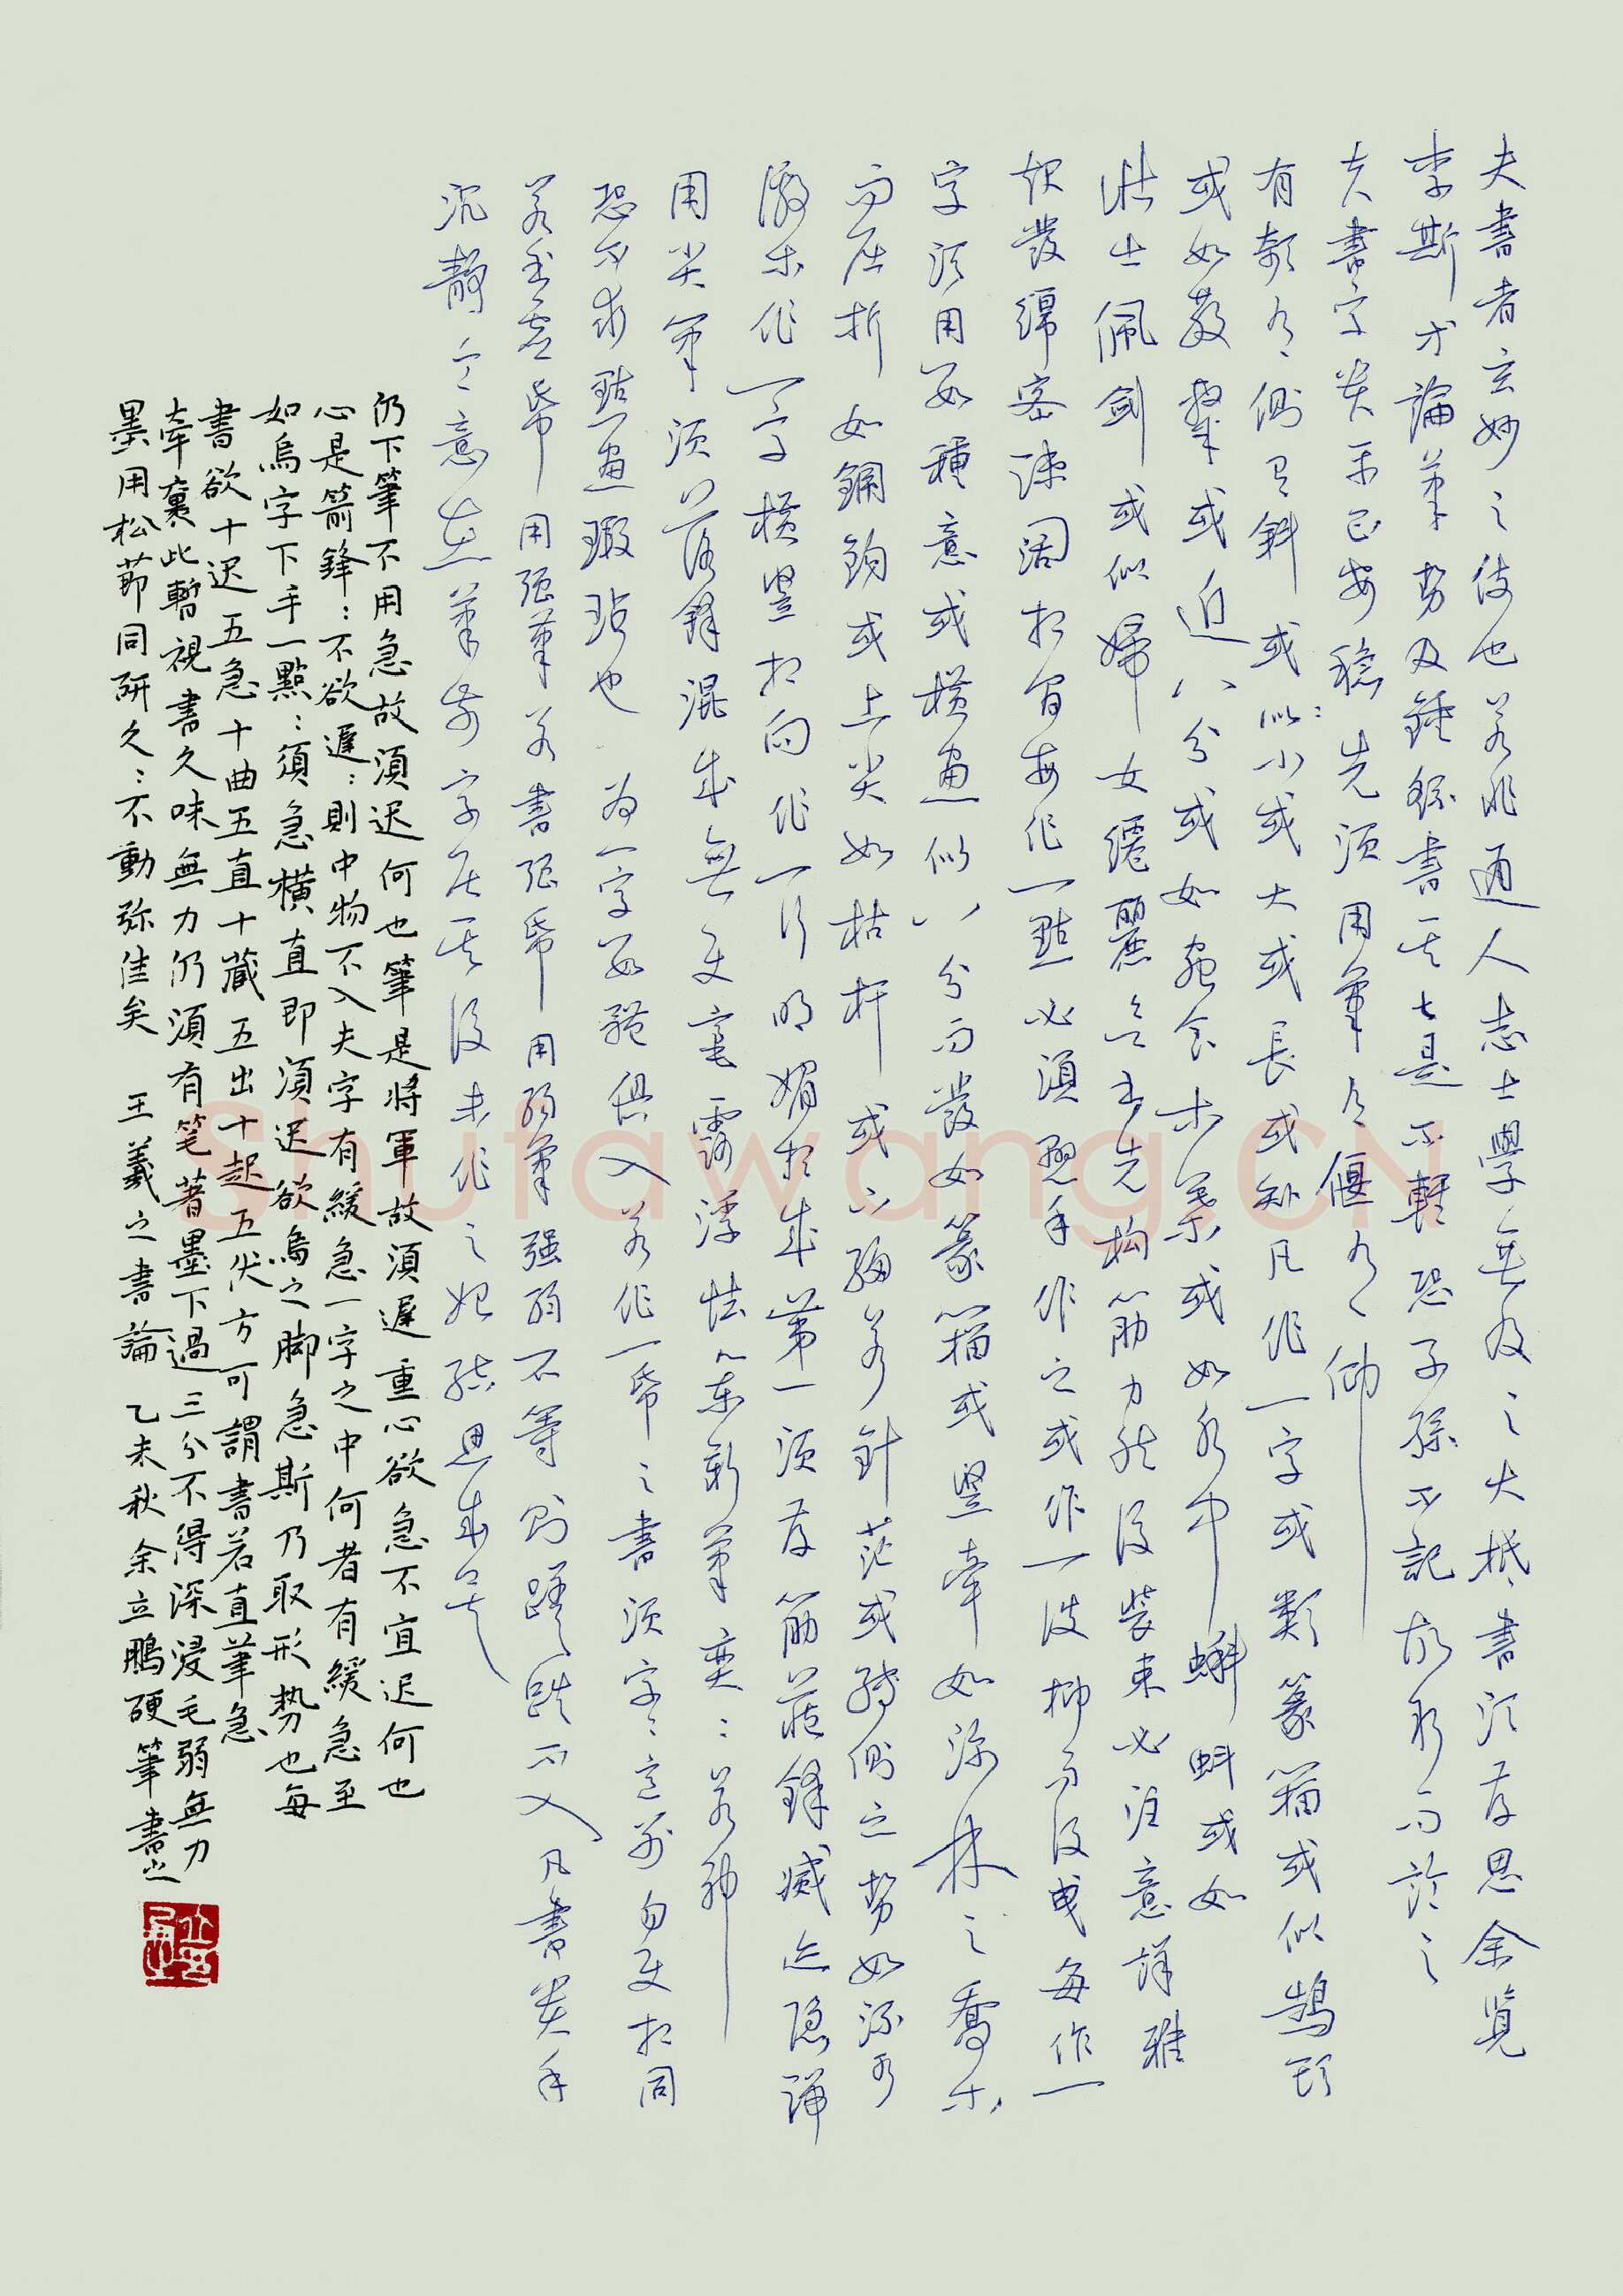 夫書者玄妙之伎也若非通人志士學無及之大抵書須存思余覽
李斯等論筆勢及鍾繇書骨甚是不輕恐子孫不記故敘而論之
夫書字貴平正安穩先須用筆有偃有仰
有欹有側有斜或似小或大或長或短凡作一字或類篆籀或似鵠頭
或如散隸或近八分或如蟲食木葉或如水中蝌蚪或如
壯士佩劍或似婦女纖麗欲書先構筋力然後裝束必注意詳雅
起發綿密疎闊相間每作一點必須懸手作之或作一波抑而後曳每作一
字須用數種意或橫畫似八分而發如篆籀或豎牽如深林之喬木
而屈折如鋼鉤或上尖如枯杆或下細若針芒或轉側之勢如流水
激來作一字橫豎相向作一行明媚相成第一須存筋藏鋒滅迹隱端
用尖筆須落鋒混成無使毫露浮怯舉新筆爽爽若神
即不求點畫瑕玷也為一字數體俱入若作一紙之書須字字意別勿使相同
若書虛紙用強筆若書強紙用弱筆強弱不等則蹉跌不入凡書貴乎
沉靜令意在筆前字居其後未作之始結思成矣
仍下筆不用急故須迟何也筆是將軍故須遲重心欲急不宜迟何也
心是箭鋒箭不欲遲遲則中物不入夫字有緩急一字之中何者有緩急至
如烏字下手一點點須急橫直即須迟欲烏之脚急斯乃取形势也每
書欲十迟五急十曲五直十藏五出十起五伏方可謂書若直筆急
牽裏此暫視書久味無力仍須有笔著墨下過三分不得深浸毛弱無力
墨用松節同研久久不動弥佳矣 王羲之書論 乙未秋余立鵬硬筆書之
Shufawang.CN